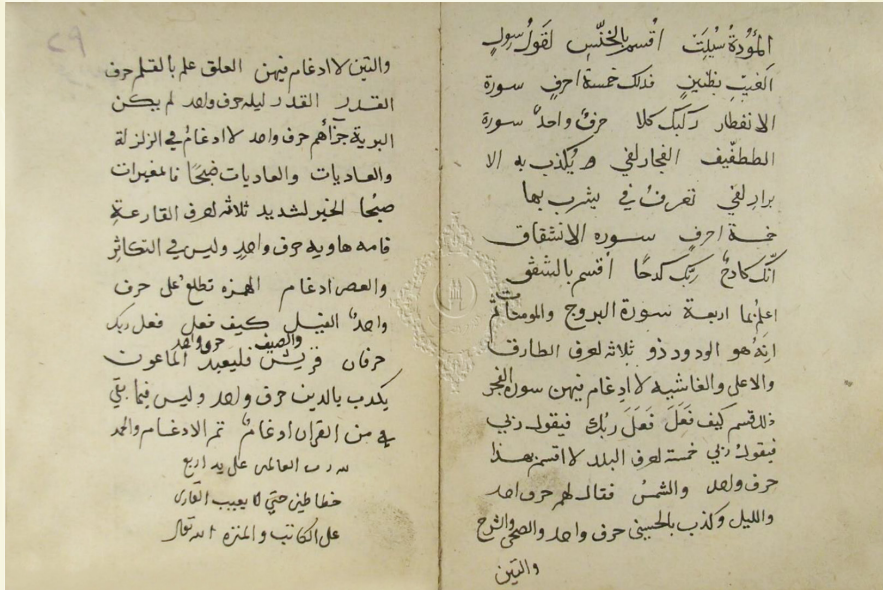 المؤودة سئلت أقسم بالخنس لقول رسول
الغيب بظنين فذلك خمسة احرف سورة
الانفطار ركبك كلا حرف واحد سورة
المطففين الفجار لفي وما يكذب به الا
برار لفي تعرف في يشرب بها
خمسة احرف سورة الانشقاق
انك كادح ربك كدحا أقسم بالشفق
اعلم بما اربعة سورة البروج والمومنات ثم
انه هو الودود ذو ثلاثة احرف الطارق
والاعلى والغاشيه لا ادغام فيهن سورة الفجر
ذلك قسم كيف فعل فعل ربك فيقول ربي
فيقول ربي خمسة احرف البلد لا اقسم بهذا
حرف واحد والشمس فقال لهم حرف احد
والليل وكذب بالحسنى حرف واحد والضحى والشرح
والتين
٢٩
والتين لا ادغام فيهن العلق علم بالقلم حرف
القدر القدر ليلة حرف واحد لم يكن
البرية جزآؤهم حرف واحد لا ادغام في الزلزلة
والعاديات والعاديات ضبحا فالمغيرات
صبحا الخير لشديد ثلاثه احرف القارعة
فامه هاويه حرف واحد وليس في التكاثر
والعصر ادغام الهمزه تطلع على حرف
واحد الفيل كيف فعل فعل ربك
حرفان قريش والصيف فليعبدوا حرف واحد الماعون
يكذب بالدين حرف واحد وليس فيما بقي
من القران ادغام تم الادغام والحمد
لله رب العالمين على يد اربع
خطاطين حتى لا يعيب القارى
على الكاتب والمنزه الله تعالى